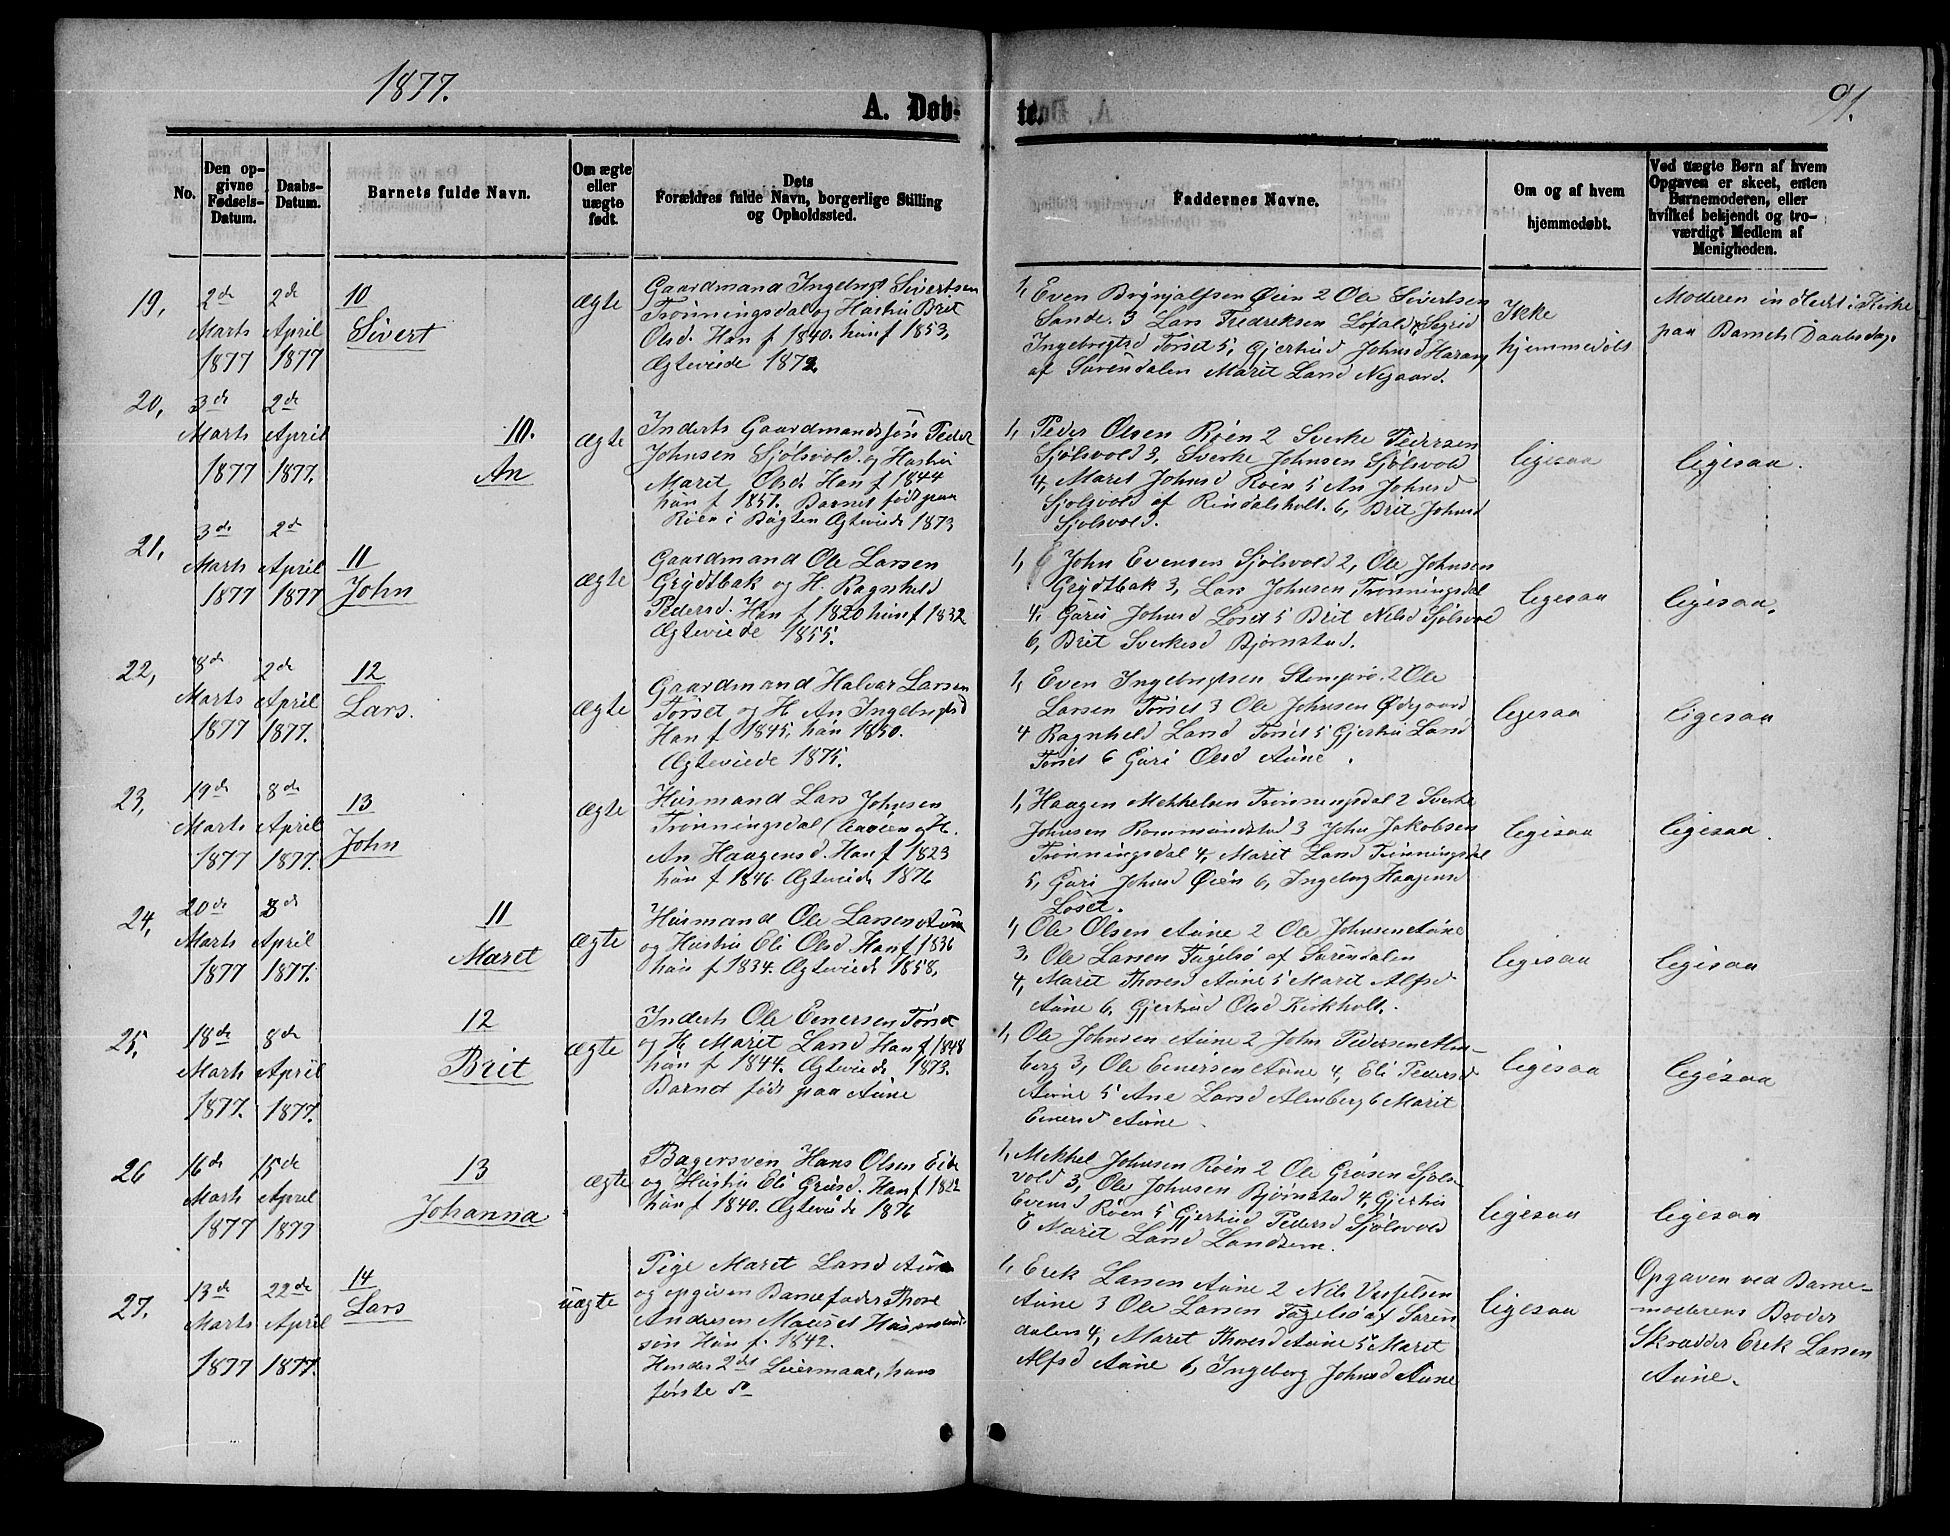 1877.
91.
A. Døb-
te.
No.
Den op-
givne
Fødsels-
Datum.
Daabs-
Datum.
Barnets fulde Navn.
Om ægte
eller
uægte
født.
Dets
Forældres fulde Navn, borgerlige Stilling
og Opholdssted.
Faddernes Navne.
Om og af hvem
hjemmedøbt.
Ved uægte Børn af hvem
Opgaven er skeet, enten
Børnemoderen, eller
hvilket bekjendt og tro-
værdigt Medlem af
Menigheden.
19,
2de
Marts
1877
2de
April
1877
10
Sivert
ægte
Gaardmand Ingebrigt Sivertsen
Trønningsdal og Hustru Brit
Olsd. Han f 1840. hun f 1853,
Ægteviede 1872.
1, Even Brynjulfsen Øien 2 Ole Sivertsen
Sande. 3 Lars Fredriksen Løfald Sigrid
Ingebrigtsd Torset 5, Gjertrud Johnsd Harang
af Surendalen Marit Larsd Nygaard.
Ikke
hjemmedøbt
Moderen indledt i Kirke
paa Barnets Daabsdag.
20,
3de
Marts
1877
2de
April
1877.
10.
An
ægte
Inderts Gaardmandssøn Peder
Johnsen Sjølsvold. og Hustru
Marit Olsd. Han f 1844
hun f 1851. Barnet født paa
Røen i Bøgten Ægteviede 1873
1, Peder Olsen Røen 2 Sverke Pedersen
Sjølsvold 3, Sverke Johnsen Sjølsvold
4, Maret Johnsd Røen 5 An Johnsd
Sjølsvold af Rindalsholt. 6, Brit Johnsd
Sjølsvold.
ligesaa
ligesaa.
21,
3de
Marts
1877
2de
April
1877
11
John
ægte
Gaardmand Ole Larsen
Grydtbak og H. Ragnhild
Pedersd. Han f 1820 hun f 1832
Ægteviede 1855.
1, John Evensen Sjølsvold 2, Ole Johnsen
Grydtbak 3, Lars Johnsen Trønningsdal
4, Guru Johnsd Løset 5 Brit Nilsd Sjølsvol
6, Brit Sverkesd Bjørnstad.
ligesaa
ligesaa.
22,
8de
Marts
1877
2de
April
1877.
12
Lars.
ægte
Gaardmand Halvar Larsen
Torset og H. An Ingebrigtsd
Han f 1845, hun 1850.
Ægteviede 1875.
1, Even Ingebrigtsen Stomprø. 2 Ole
Larsen Torset 3 Ole Johnsen Ødegaard
4 Ragnhild Larsd Torset 5 Gjertru Larsd
Torset 6 Guri Olsd Aune.
ligesaa
ligesaa
23,
19de
Marts
1877
8de
April
1877.
13
John
ægte
Husmand Lars Johnsen
Trønningsdal (Aaøien og H.
An Haagensd. Han f 1823
hun f 1846. Ægteviede 1876
1, Haagen Mekkelsen Trønningsdal 2 Sverke
Johnsen Rommundstad 3 John Jakobsen
Trønningsdal 4, Marit Larsd Trønningsdal
5, Guri Johnsd Øien 6, Ingeborg Haagensd
Løset.
ligesaa
ligesaa.
24,
20de
Marts
1877
8de
April
1877.
11
Maret
ægte
Husmand Ole Larsen Aune
og Hustru Eli Olsd. Han f 1836
hun f 1834. Ægteviede 1858,
1, Ole Olsen Aune 2 Ole Johnsen Aune
3, Ole Larsen Fugelsø af Surendalen
4, Marit Thoresd Aune 5 Marit Alfsd
Aune 6, Gjertrud Olsd Kirkholt.
ligesaa
ligesaa
25,
18de
Marts
1877.
8de
April
1877.
12
Brit
ægte
Inderts Ole Einersen Torset
og H. Marit Larsd Han f 1848
hun f 1844. Ægteviede 1873.
Barnet født paa Aune
1, Ole Johnsen Aune 2 John Pedersen Alm-
berg 3, Ole Einersen Aune 4, Eli Pedersd
Aune 5 Ane Larsd Almberg 6 Marit
Einersd Aune.
ligesaa
ligesaa
26
16de
Marts
1877
15de
April
1877
13
Johanna
ægte
Bagersven Hans Olsen Eide
og Hustru Eli Grusd. Han f 1822
hun f 1840. Ægteviede 1876
1, Mekkel Johnsen Røen 2 Ole Grøsen Sjøls-
vold 3, Ole Johnsen Bjørnstad 4, Gjertru
Evensd Røen 5 Gjertrud Pedersd Sjølsvold
6 Marit Larsd Landsem.
ligesaa
ligesaa
27.
13de
Marts
1877
22de
April
1877.
14
Lars
uægte
Pige Maret Larsd Aune
og opgiven Barnefader Thore
Andersen Mauset Husmand-
søn Hun f. 1842.
Hendes 2det Leiermaal, hans
første do
1, Erik Larsen Aune 2 Nils Vasselsen
Aune 3 Ole Larsen Fugelsø af Suren
dalen 4, Maret Thoresd Aune 5 Maret
Alfsd Aune 6, Ingeborg Johnsd Aune
ligesaa
Opgaven ved Barne-
moderens Broder
Skrædder Erek Larsen
Aune.